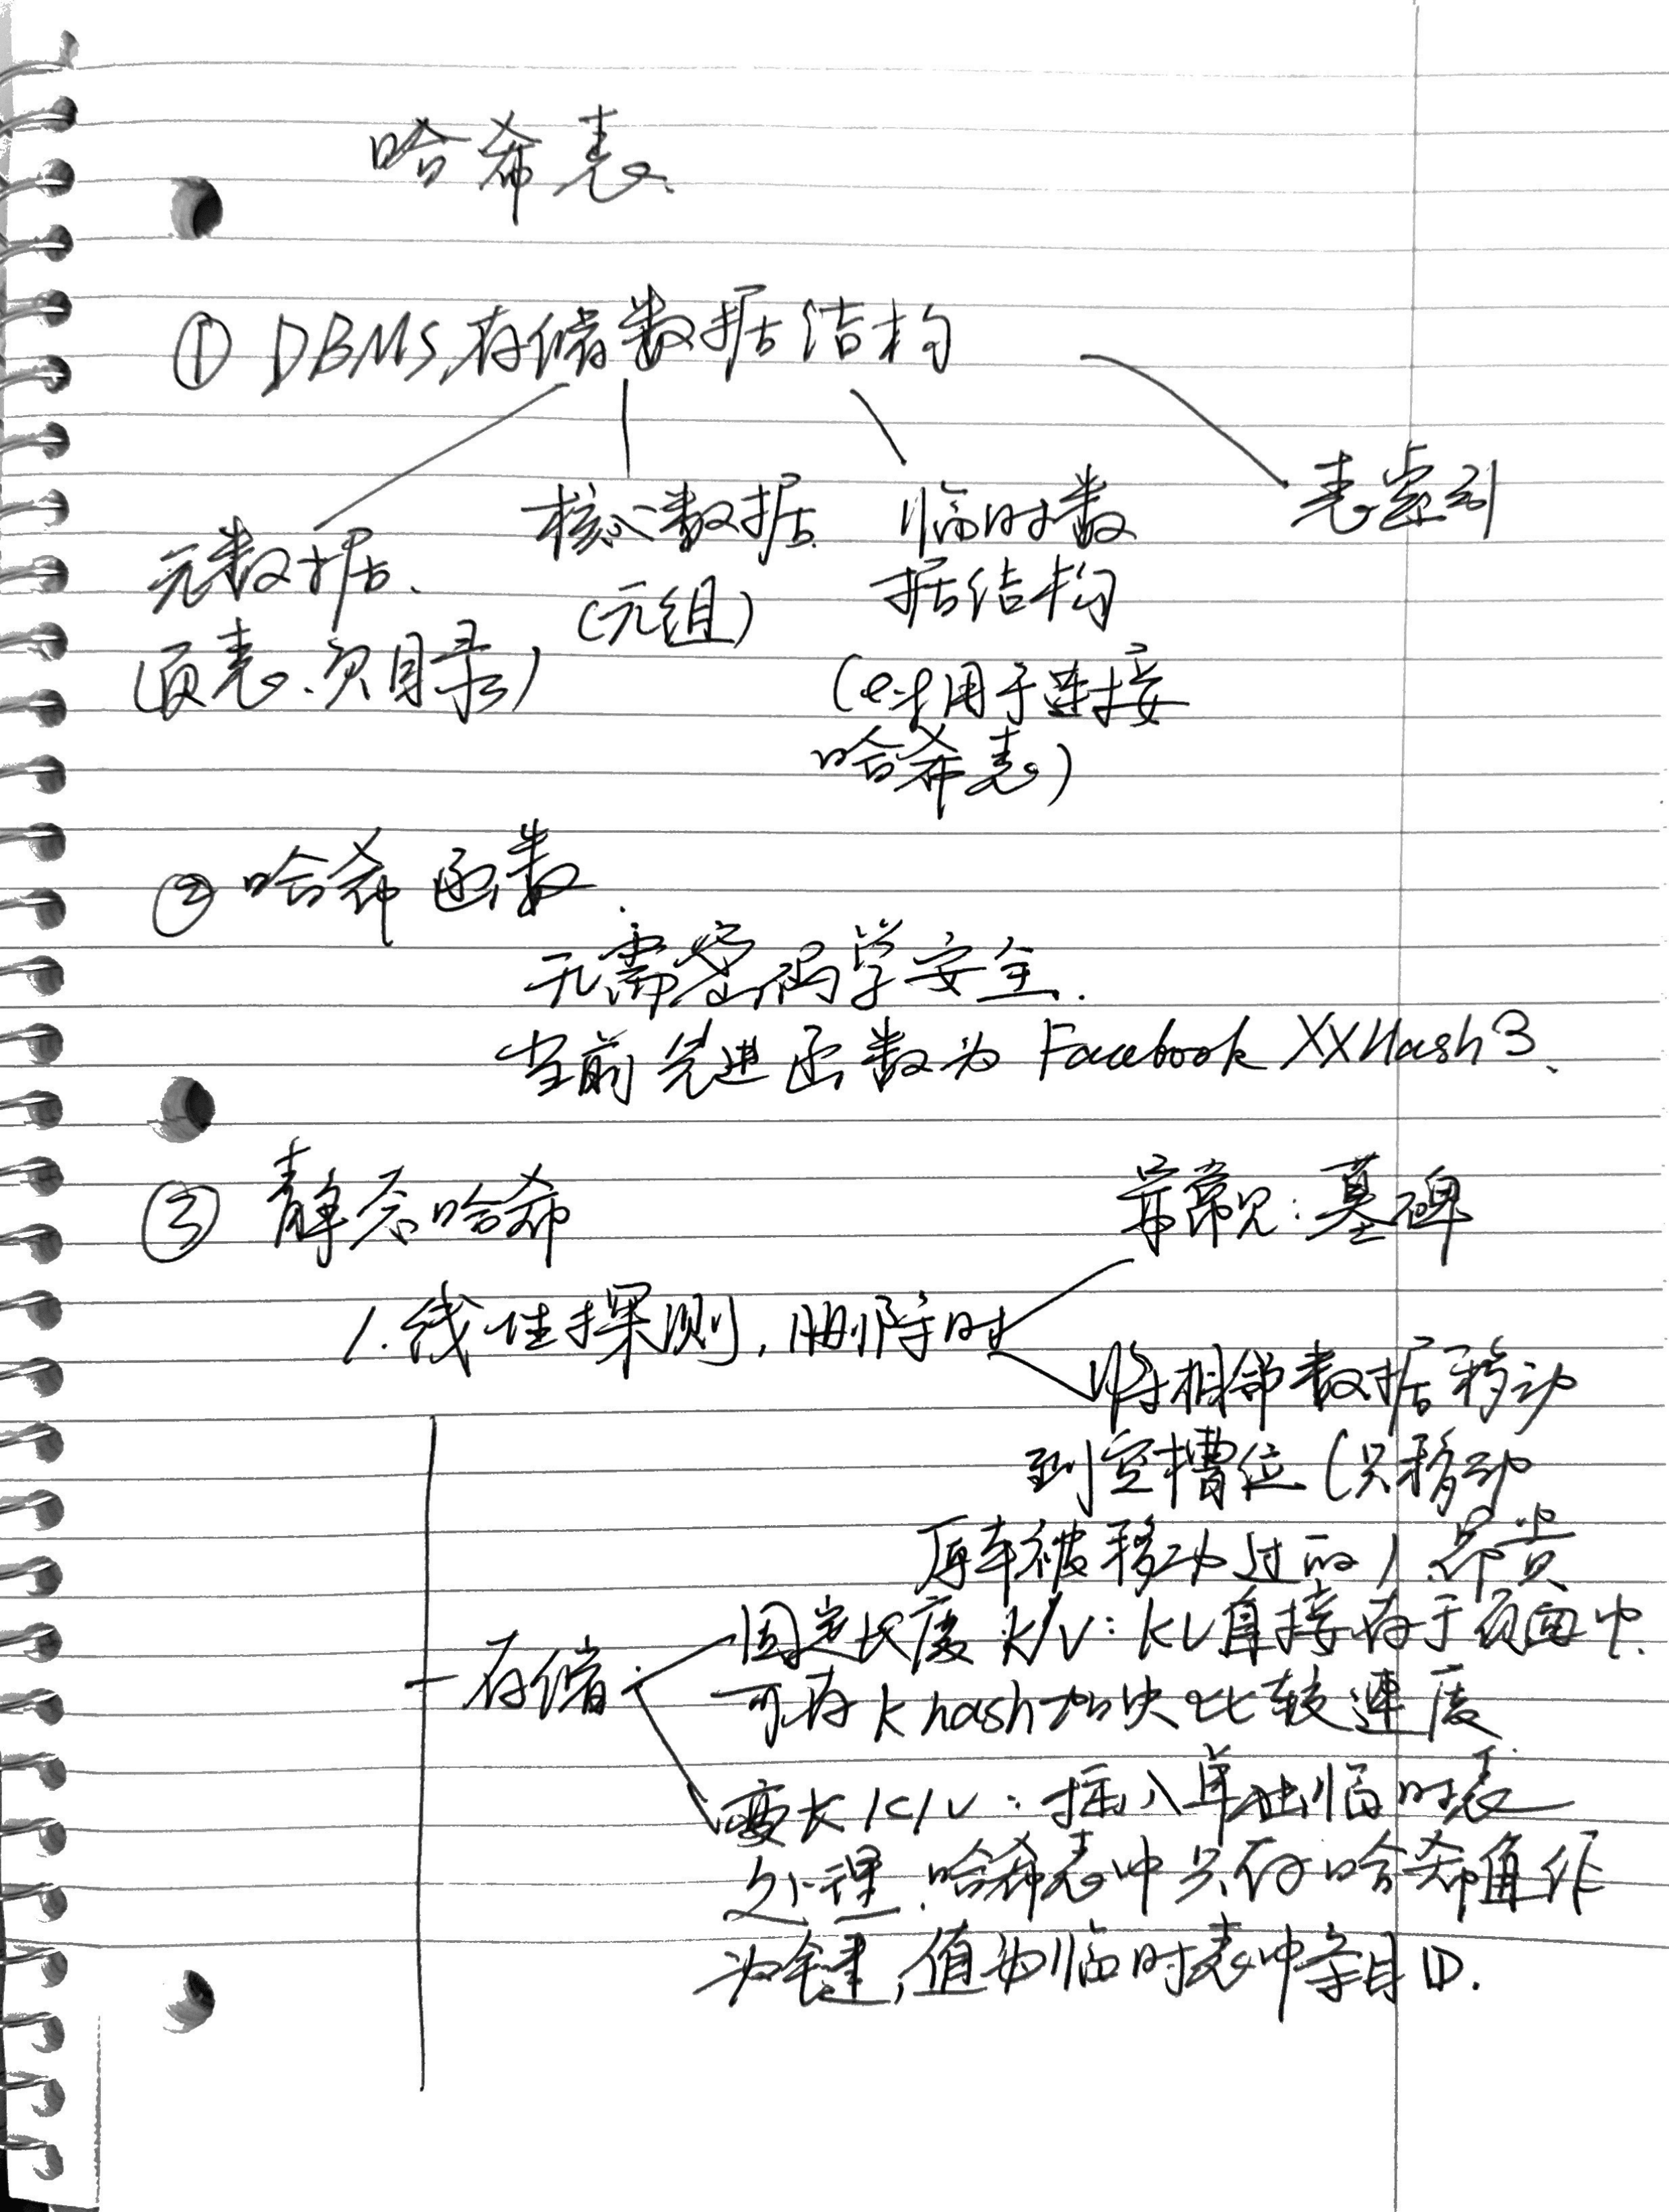 哈希表
① DBMS存储数据结构
元数据.
(页表、页目录)
核心数据
(元组)
临时数
据结构
(e.g.用于连接
哈希表)
表索引
② 哈希函数
无需密码学安全.
当前先进函数为 Facebook XXHash3.
③ 静态哈希
1. 线性探测, 删除时
常见: 墓碑
将相邻数据移动
到空槽位 (只移动
原本被移动过的) 昂贵
存储.
固定长度 K/V: KV直接存于页面中.
可存 K hash加快比较速度
变长 K/V: 插入单独临时表
处理. 哈希表中只存哈希值作
为键, 值为临时表中条目ID.